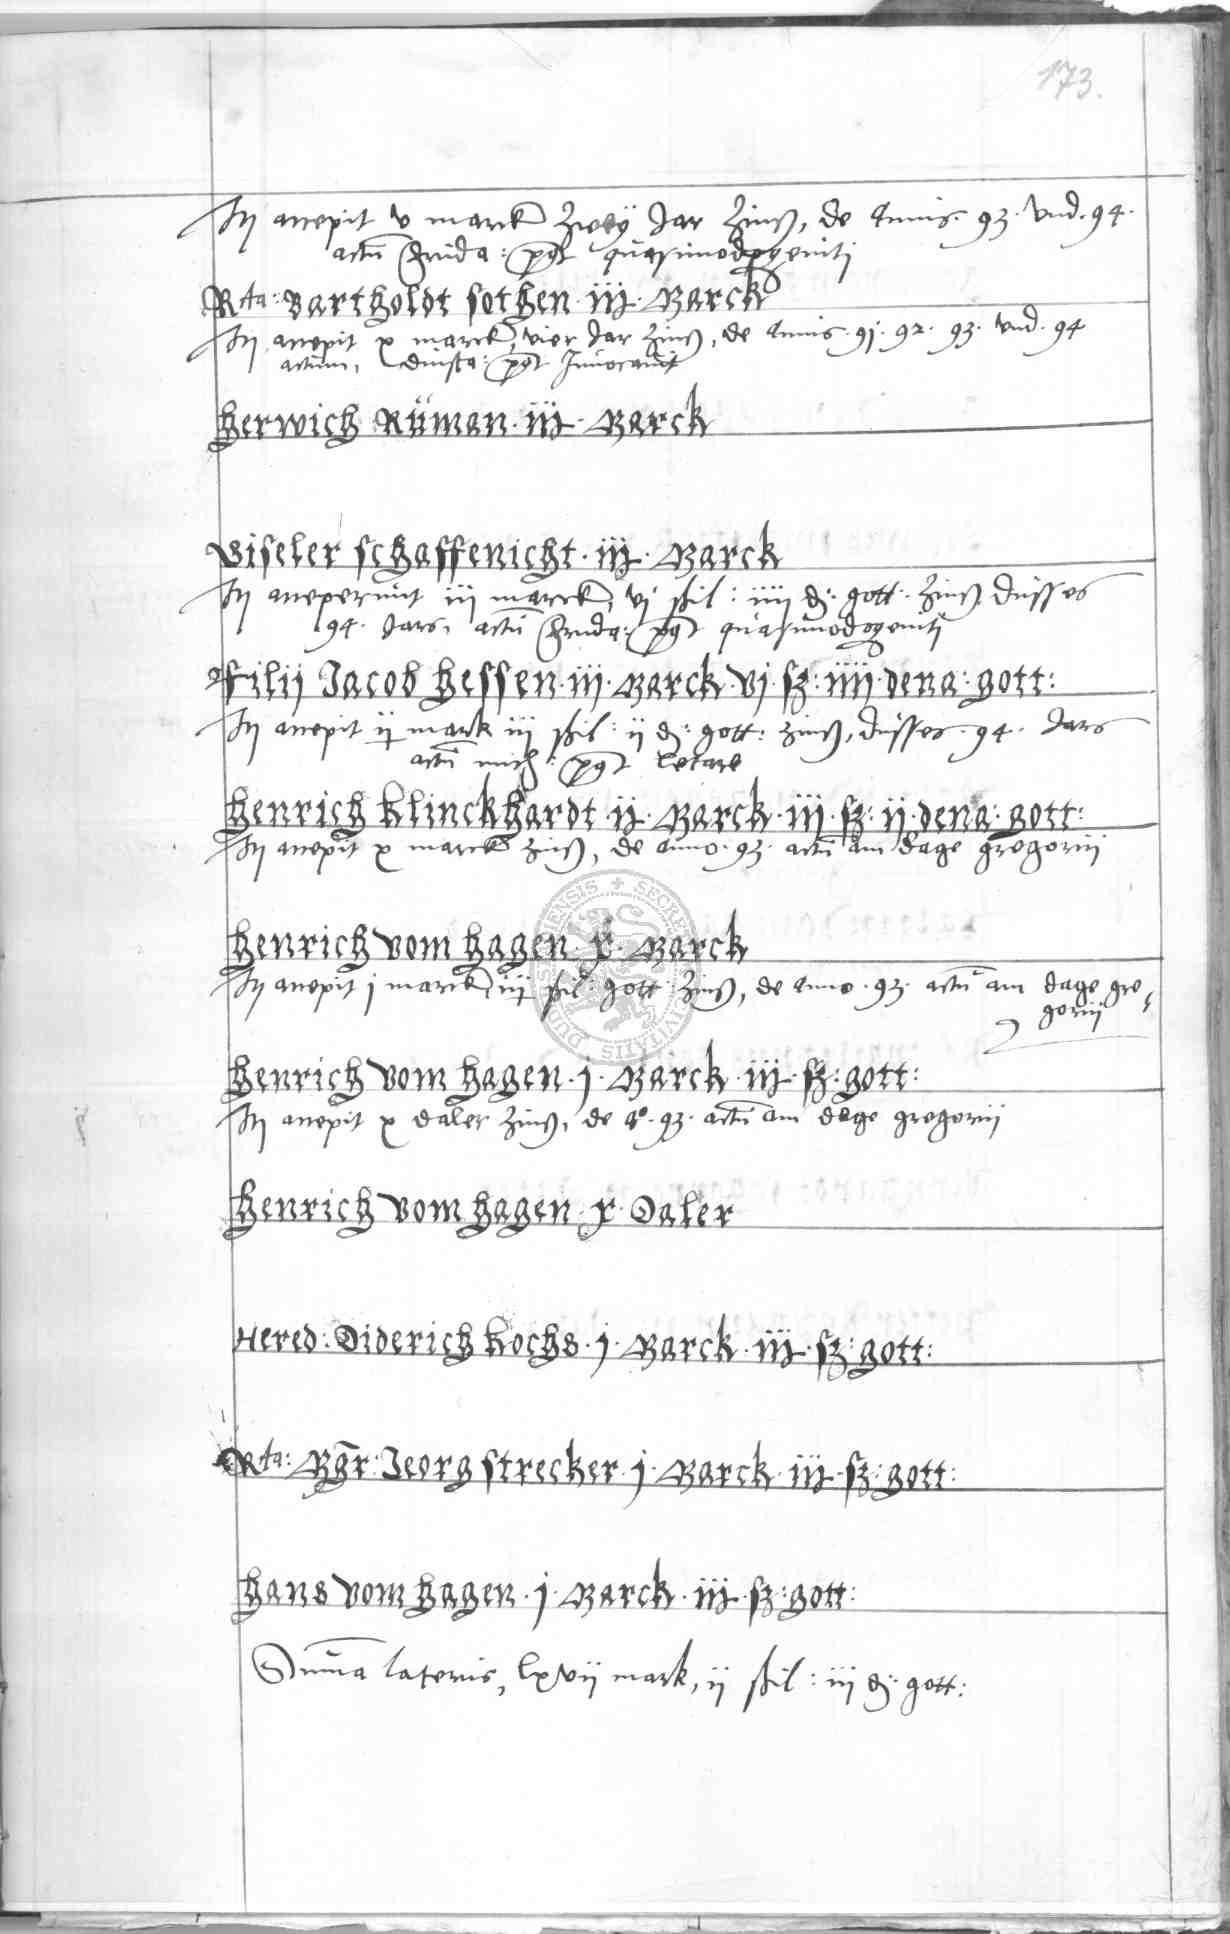 173.
Itē accepit v marck zwey Jar zinß, de Annis. 93. vnd. 94.
actū frida: post quasimodogeniti
Rta: Bartholdt sothen. iij. Marck
Itē accepit x marck, vier Jar zinß, de Annis. 91. 92. 93. vnd. 94
actum, dinsta: post Inuocauit
Herwich Rüman. iij. Marck
Giseler schaffenicht. iij. Marck
Itē acceperunt iij marck, vj ßil: iiij d: gott. zinß, disses
94. Jars, actū frida: post quasimodogeniti
filij Jacob Hessen. iij. Marck. vj. sz: iiij. dena: gott:
Itē accepit ij mark iij ßil: ij d: gott: zinß, disses. 94. Jars
actū mich: post letare
Henrich Klinckhardt. ij. Marck. iij. sz: ij. dena: gott:
Itē accepit x marck zinß, de Anno. 93. actū am dage gregorij
Henrich vom Hagen. x. Marck
Itē accepit j marck, iij ßil: gott: zinß, de Anno. 93. actū am dage gre-
gorij
Henrich vom Hagen. j. Marck. iij. sz: gott:
Itē accepit x daler zinß, de Ao. 93. actū am dage gregorij
Henrich vom Hagen. x. Daler
Hered: Diderich Kochs. j. Marck. iij. sz: gott:
Rta: Mgr: Jeorg strecker. j. Marck. iij. sz: gott:
Hans vom Hagen. j. Marck. iij. sz: gott:
Suma lateris, lxvij mark, ij ßil: iij d: gott: